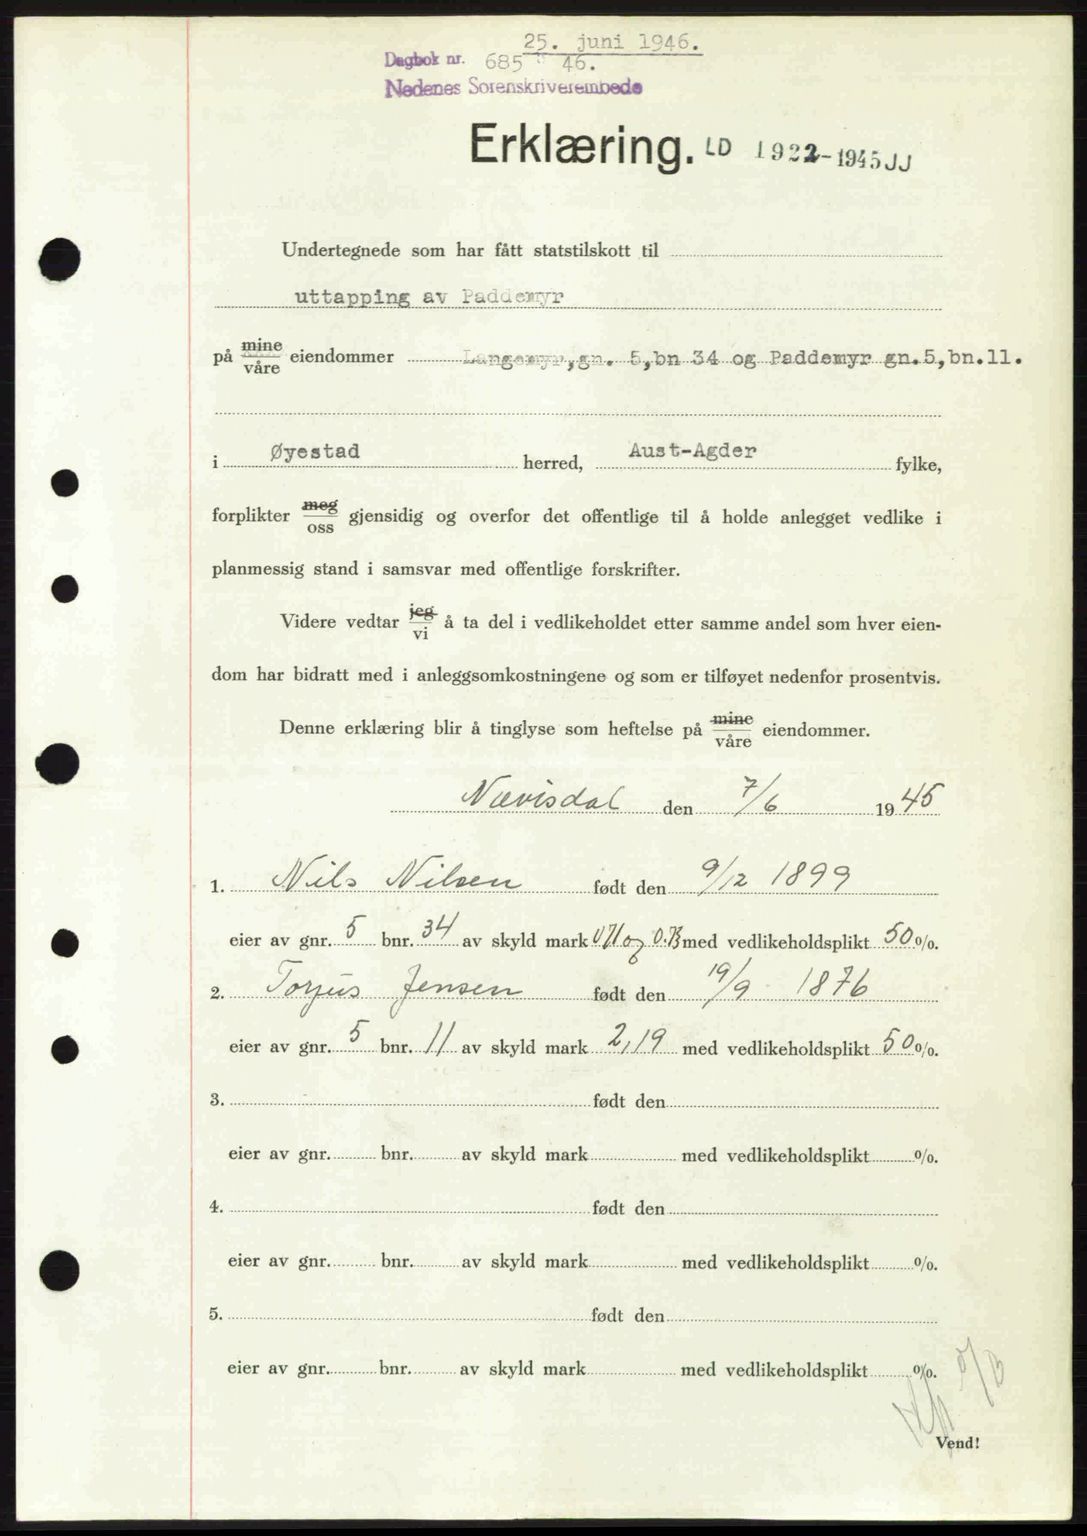 25. juni 1946.
Dagbok nr. 685 46.
Nedenes Sorenskriverembede
Erklæring. LD 1922-1945 JJ
Undertegnede som har fått statstilskott til
uttapping av Paddemyr
på mine/våre eiendommer Langemyr, gn. 5, bn 34 og Paddemyr gn. 5, bn. 11.
i Øyestad herred, Aust-Agder fylke,
forplikter meg/oss gjensidig og overfor det offentlige til å holde anlegget vedlike i
planmessig stand i samsvar med offentlige forskrifter.
Videre vedtar jeg/vi å ta del i vedlikeholdet etter samme andel som hver eien-
dom har bidratt med i anleggsomkostningene og som er tilføyet nedenfor prosentvis.
Denne erklæring blir å tinglyse som heftelse på mine/våre eiendommer.
Nævisdal den 7/6 1945
1. Nils Nilsen født den 9/12 1899
eier av gnr. 5 bnr. 34 av skyld mark og med vedlikeholdsplikt 50 %.
2. Torjus Jensen født den 19/9 1876
eier av gnr. 5 bnr. 11 av skyld mark 2,19 med vedlikeholdsplikt 50 %.
3. født den
eier av gnr. bnr. av skyld mark med vedlikeholdsplikt %.
4. født den
eier av gnr. bnr. av skyld mark med vedlikeholdsplikt %.
5. født den
eier av gnr. bnr. av skyld mark med vedlikeholdsplikt %.
Vend!